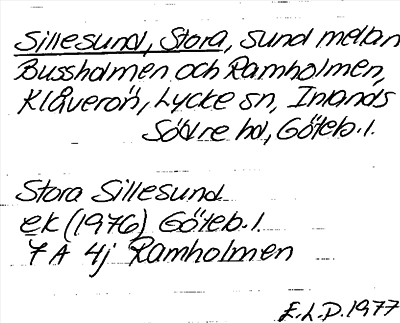 Sillesund, Stora, sund mellan
Bussholmen och Ramholmen,
Klåverön, Lycke sn, Inlands
Södre hd, Göteb. l.
Stora Sillesund
ek (1976) Göteb. l.
7 A 4j Ramholmen
E.L.P. 1977